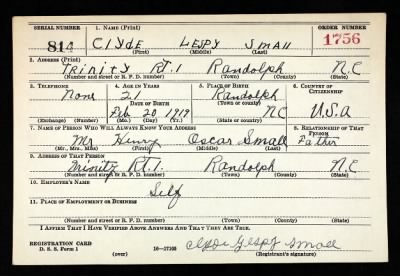 SERIAL NUMBER 1. NAME (Print) ORDER NUMBER
814 Clyde Lespy Small 1756
(First) (Middle) (Last)
2. ADDRESS (Print)
Trinity RT. 1 Randolph N.C
(Number and street or R. F. D. number) (Town) (County) (State)
3. TELEPHONE 4. AGE IN YEARS 5. PLACE OF BIRTH 6. COUNTRY OF CITIZENSHIP
None 21 Randolph
DATE OF BIRTH (Town or county)
Feb 20 1919 NC U.S.A
(Exchange) (Number) (Mo.) (Day) (Yr.) (State or country)
7. NAME OF PERSON WHO WILL ALWAYS KNOW YOUR ADDRESS 8. RELATIONSHIP OF THAT PERSON
Mr Henry Oscar Small Father
(Mr., Mrs., Miss) (First) (Middle) (Last)
9. ADDRESS OF THAT PERSON
Trinity RT. 1. Randolph N.C
(Number and street or R. F. D. number) (Town) (County) (State)
10. EMPLOYER'S NAME
Self
11. PLACE OF EMPLOYMENT OR BUSINESS
(Number and street or R. F. D. number) (Town) (County) (State)
I AFFIRM THAT I HAVE VERIFIED ABOVE ANSWERS AND THAT THEY ARE TRUE.
REGISTRATION CARD
D. S. S. Form 1 16—17105 Clyde Lespy Small
(over) (Registrant's signature)